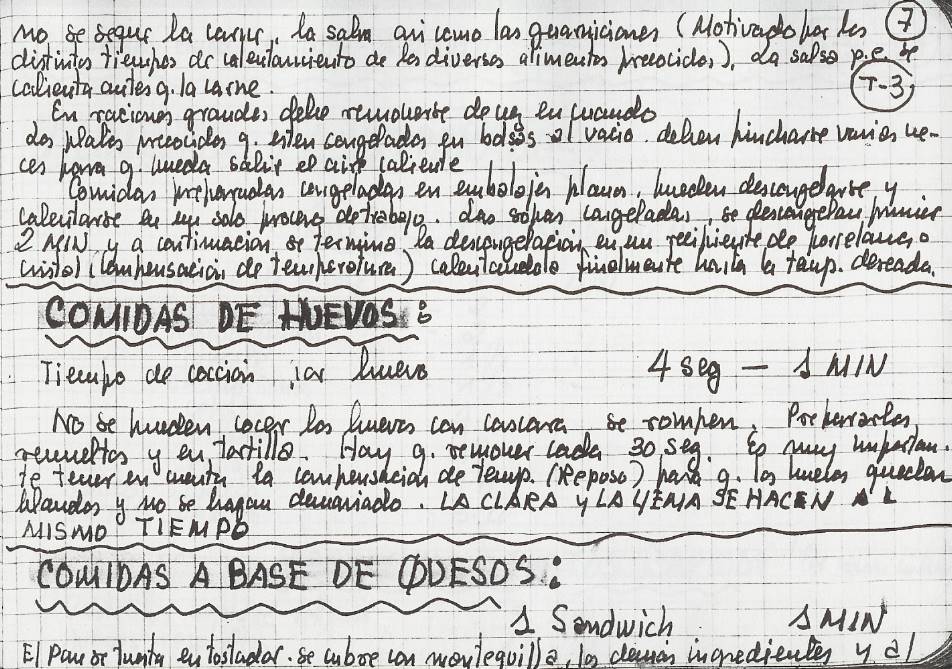 no se seque la carne, la salsa asi como las guarniciones (Motivado por los 7
distintos tiempos de calentamiento de los diversos alimentos precocidos). La salsa p.e. se
calienta antes q. la carne. T-3
En raciones grandes debe removerse de vez en cuando
Los platos precocidos q. esten congelados en bolsas al vacio. deben pincharse varias ve-
ces para q. pueda salir el aire caliente
Comidas preparadas congeladas en embalajes planos, pueden descongelarse y
calentarse en un solo proceso de trabajo. Las sopas congeladas, se descongelan
2 MIN y a continuacion se termina la descongelación en un recipiente de porcelana o
cristal (Compensación de temperatura) calentandola finalmente hasta la temp. deseada.
COMIDAS DE HUEVOS:
Tiempo de cocción por huevo 4 seg — 1 MIN
No se pueden cocer los huevos con cascara se rompen. Prepararlos
revueltos y en tortilla. Hay q. remover cada 30 seg. Es muy importan-
te tener en cuenta la compensación de temp. (Reposo) para q. los huevos quedan
blandos y no se hagan demasiado. LA CLARA Y LA YEMA SE HACEN AL
MISMO TIEMPO
COMIDAS A BASE DE QUESOS:
1 Sandwich 1 MIN
El Pan se tuesta en tostador. se cubre con mantequilla, los demas ingredientes y al